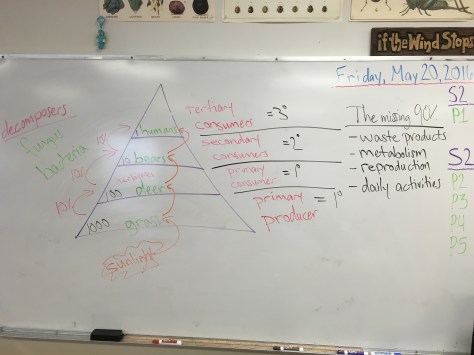 if the Wind Stops
Friday, May 20, 2016
decomposers
fungi
bacteria
10%
10%
10%
1 humans
10 bears
100 deer
1000 grass
sunlight
Tertiary
consumers = 3°
secondary
consumers = 2°
primary
consumer = 1°
primary = 1°
producer
The missing 90%
- waste products
- metabolism
- reproduction
- daily activities
S2
P1
S2
P2
P3
P4
P5